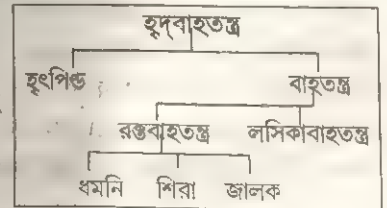 হৃদ্‌বাহতন্ত্র
হৃৎপিণ্ড বাহতন্ত্র
রক্তবাহতন্ত্র লসিকাবাহতন্ত্র
ধমনি শিরা জালক